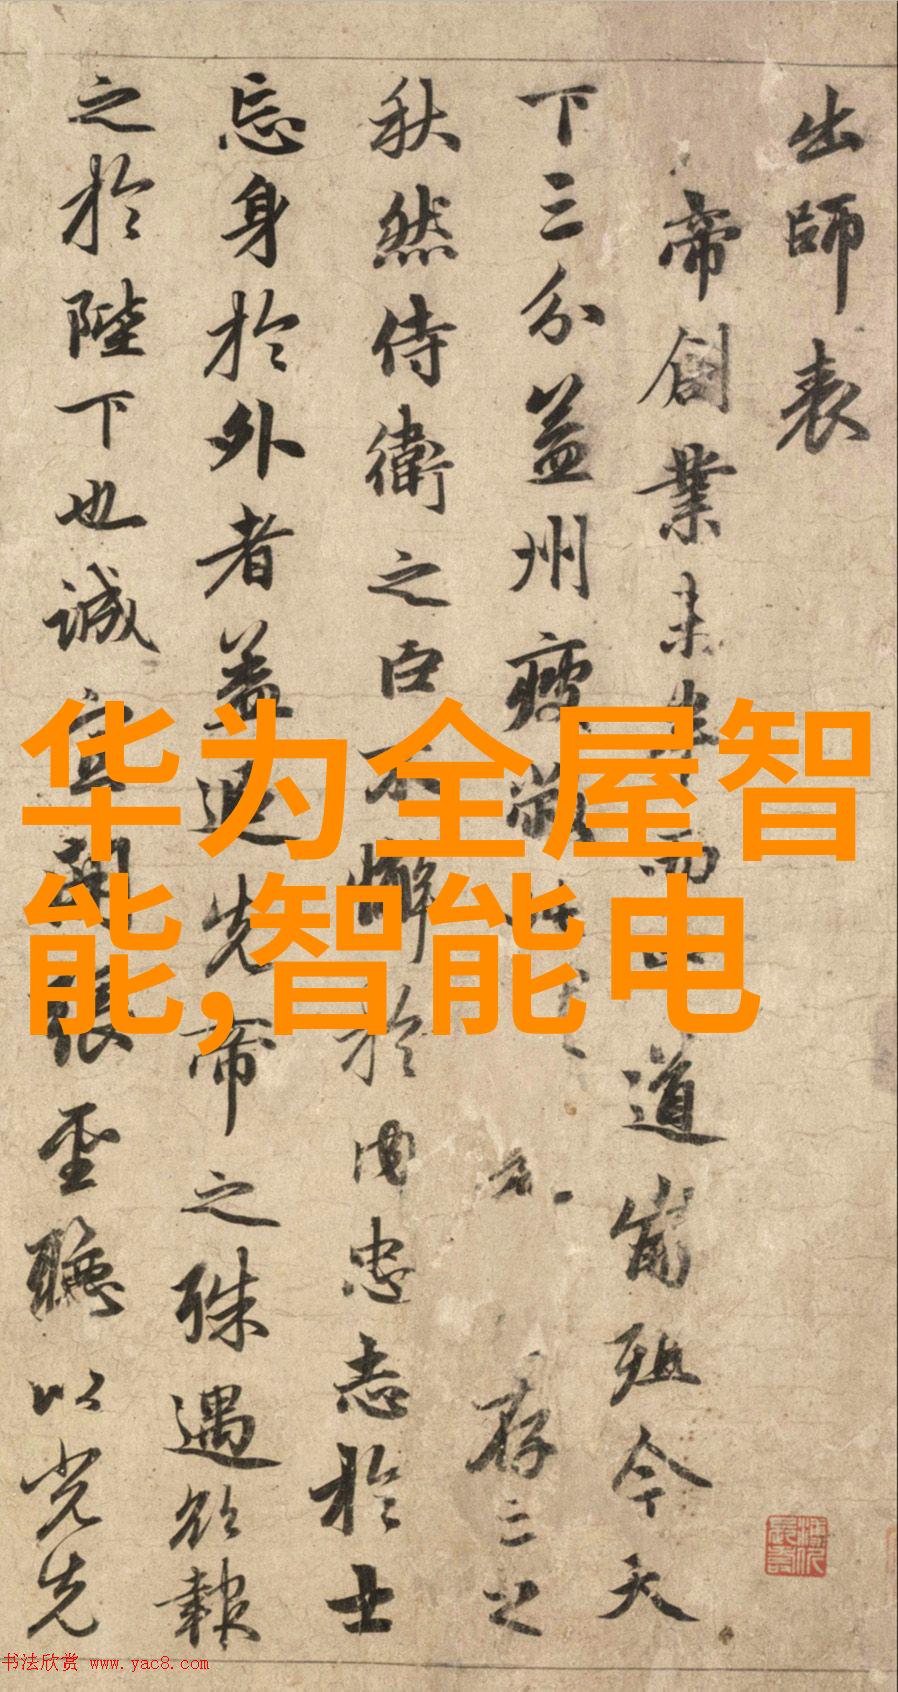 出師表
帝創業未半而道崩殂今天
下三分益州疲敝存之
秋然侍衛之臣不懈於内忠志於士
忘身於外者蓋追先帝之殊遇欲報
之於陛下也誠宜開張聖聽以光先
华为全屋智
能,智能电
书法欣赏 www.yac8.com